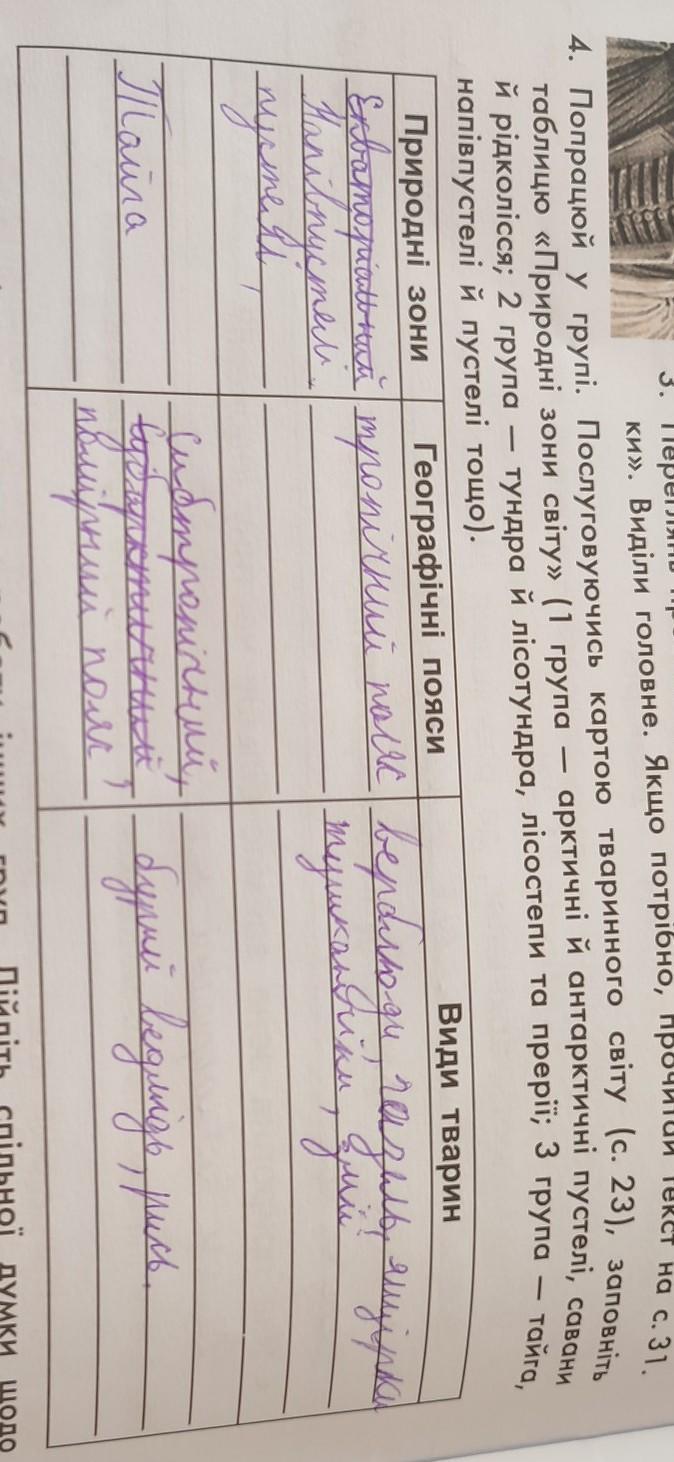 3. Переглянь
ки». Виділи головне. Якщо потрібно, прочитай текст на с. 31.
4. Попрацюй у групі. Послуговуючись картою тваринного світу (с. 23), заповніть
таблицю «Природні зони світу» (1 група — арктичні й антарктичні пустелі, савани
й рідколісся; 2 група — тундра й лісотундра, лісостепи та прерії; 3 група — тайга,
напівпустелі й пустелі тощо).
Природні зони Географічні пояси Види тварин
Екваторіальний тропічний пояс верблюди, газель, ящірки
Напівпустелі тушканчики, змії
пустелі,
Субтропічний,
Тайга Субарктичний, бурий ведмідь, рись.
помірний пояс
інших груп. Дійдіть спільної думки щодо